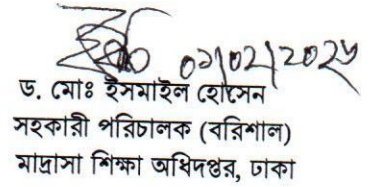 ০১/০২/২০২৬
ড. মোঃ ইসমাইল হোসেন
সহকারী পরিচালক (বরিশাল)
মাদ্রাসা শিক্ষা অধিদপ্তর, ঢাকা